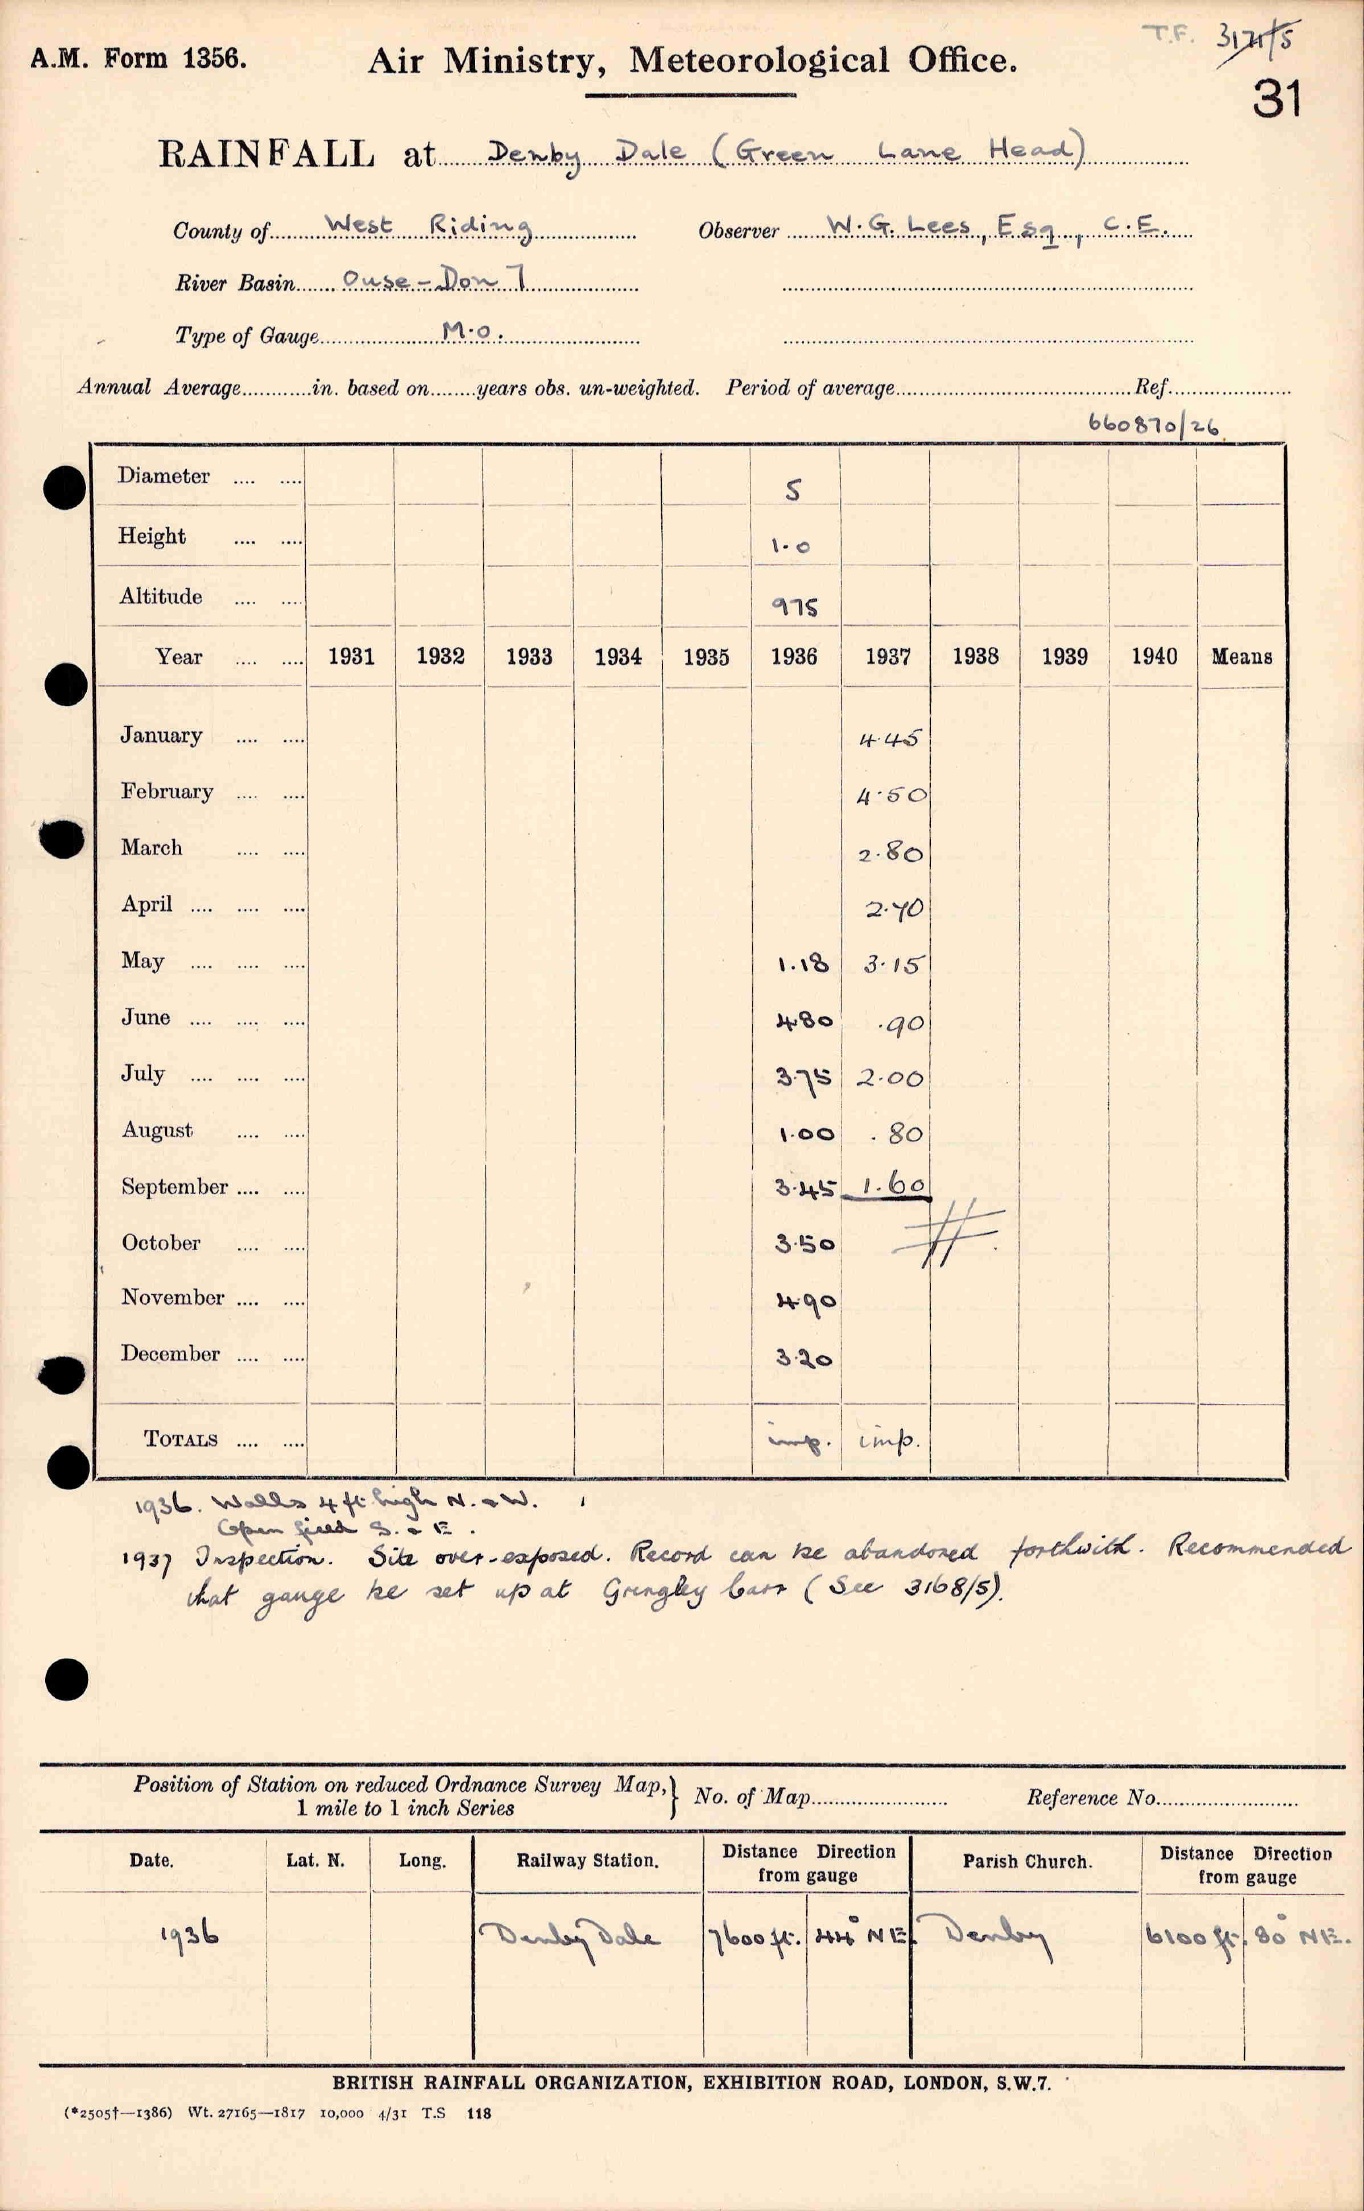 T.F. 3171/5
A.M. Form 1356. Air Ministry, Meteorological Office.
31
RAINFALL at Denby Dale (Green Lane Head)
County of West Riding Observer W.G. Lees, Esq, C.E.
River Basin Ouse-Don 7
Type of Gauge M.O.
Annual Average in. based on years obs. un-weighted. Period of average Ref.
660870/26
Diameter .... .... 5
Height .... .... 1.0
Altitude .... .... 975
Year .... .... 1931 1932 1933 1934 1935 1936 1937 1938 1939 1940 Means
January .... .... 4.45
February .... .... 4.50
March .... .... 2.80
April .... .... .... 2.70
May .... .... .... 1.18 3.15
June .... .... .... 4.80 .90
July .... .... .... 3.75 2.00
August .... .... 1.00 .80
September .... .... 3.45 1.60
October .... .... 3.50
November .... .... 4.90
December .... .... 3.20
TOTALS .... .... imp. imp.
1936. Walls 4 ft. high N. & W.
Open field S. & E.
1937 Inspection. Site over-exposed. Record can be abandoned forthwith. Recommended
that gauge be set up at Carr (See 3168/5).
Position of Station on reduced Ordnance Survey Map, } No. of Map Reference No.
1 mile to 1 inch Series
Date. Lat. N. Long. Railway Station. Distance Direction from gauge Parish Church. Distance Direction from gauge
1936 Denby Dale 7600 ft. 44° NE. Denby 6100 ft. 80° NE.
BRITISH RAINFALL ORGANIZATION, EXHIBITION ROAD, LONDON, S.W.7.
(*2505†—1386) Wt. 27165—1817 10,000 4/31 T.S 118